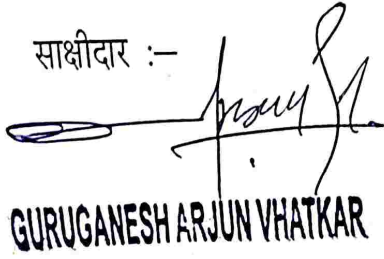 साक्षीदार :–
GURUGANESH ARJUN VHATKAR